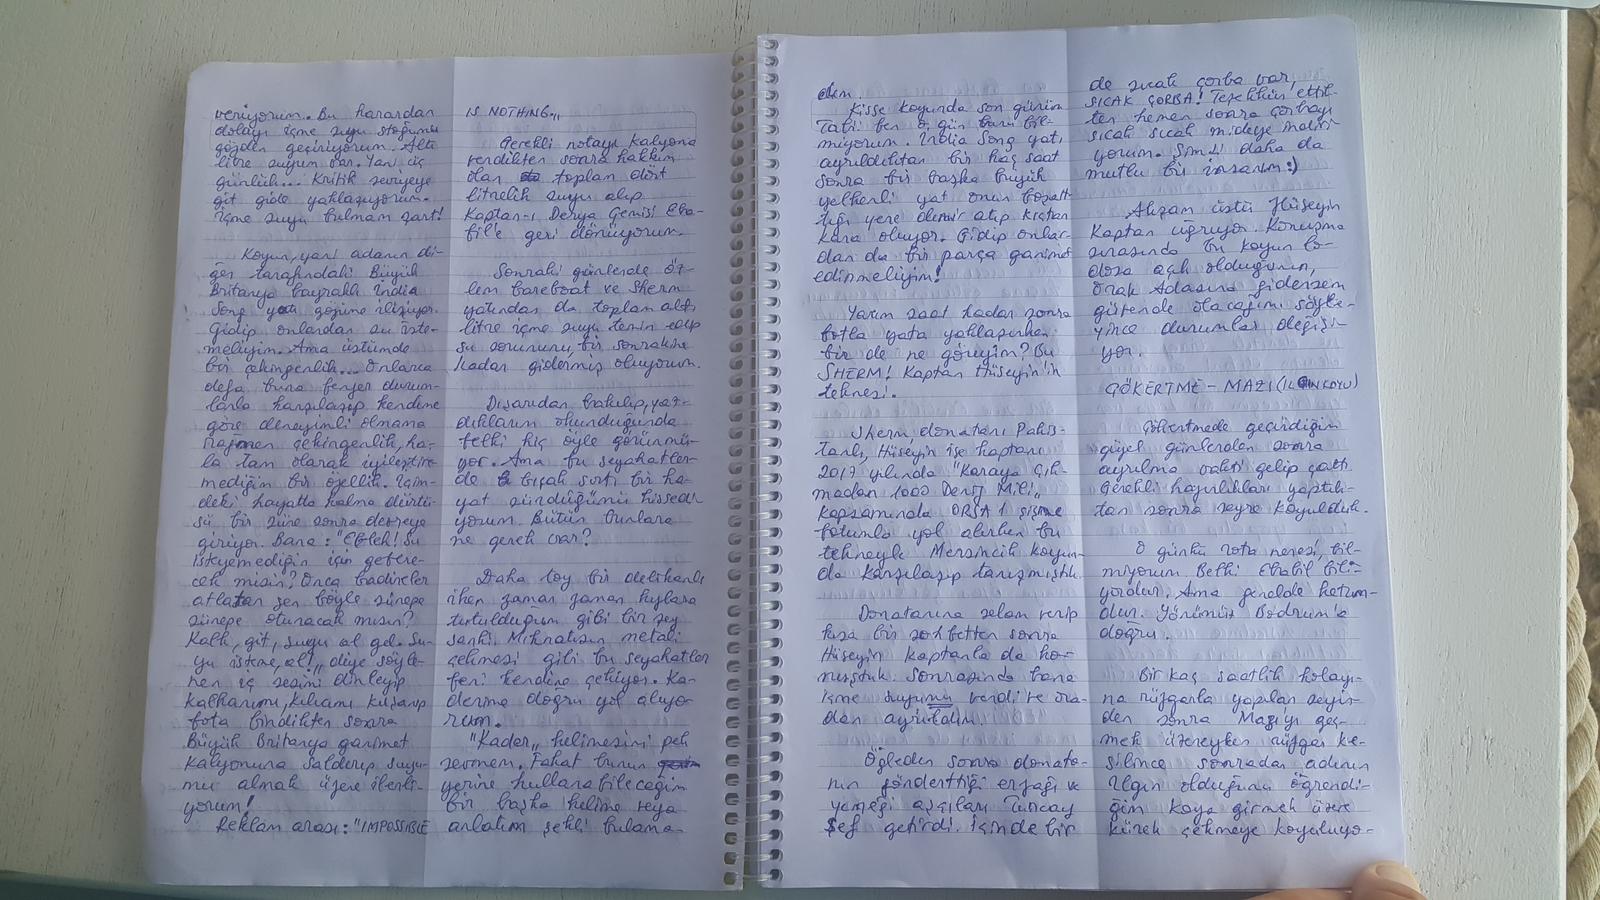 veriyorum. Bu karardan
dolayı içme suyu stoğumu
gözden geçiriyorum. Altı
litre suyum var. Yani üç
günlük... Kritik seviyeye
git gide yaklaşıyorum.
İçme suyu bulmam şart!
Koyun, yani adanın di-
ğer tarafındaki Büyük
Britanya bayraklı India
Song yatı gözüme ilişiyor.
Gidip onlardan su iste-
meliyim. Ama üstümde
bir çekingenlik... Onlarca
defa buna benzer durum-
larla karşılaşıp kendime
göre deneyimli olmama
rağmen çekingenlik, ha-
la tam olarak iyileştire-
mediğim bir özellik. İçim-
deki hayatta kalma dürtü-
sü bir süre sonra devreye
giriyor. Bana: "Ebleh! Su
isteyemediğin için gebere-
cek misin? Onca badireler
atlatan sen böyle sünepe
sünepe oturacak mısın?
Kalk, git, suyu al gel. Su-
yu isteme, al!" diye söyle-
nen iç sesimi dinleyip
kalkanımı, kılıcımı kuşanıp
bota bindikten sonra
Büyük Britanya ganimet
kalyonuna saldırıp suyu-
mu almak üzere ilerli-
yorum!
Reklam arası: "IMPOSSIBLE
IS NOTHING"
Gerekli notayı kalyona
verdikten sonra hakkım
olan toplam dört
litrelik suyu alıp
Kaptan-ı Derya Gemisi Eba-
bil'e geri dönüyorum.
Sonraki günlerde Öz-
lem bareboat ve Sherm
yatından da toplam altı
litre içme suyu temin edip
su sorununu, bir sonrakine
kadar gidermiş oluyorum.
Dışarıdan bakılıp, yaz-
dıklarım okunduğunda
belki hiç öyle görünmü-
yor. Ama bu seyahatler-
de bıçak sırtı bir ha-
yat sürdüğümü hissedi-
yorum. Bütün bunlara
ne gerek var?
Daha toy bir delikanlı
iken zaman zaman kızlara
tutulduğum gibi bir şey
sanki. Mıknatısın metali
çekmesi gibi bu seyahatler
beni kendine çekiyor. Ka-
derime doğru yol alıyo-
rum.
"Kader" kelimesini pek
sevmem. Fakat bunun
yerine kullanabileceğim
bir başka kelime veya
anlatım şekli bulama-
dım.
Kisse koyunda son günüm
Tabi ben o gün bunu bil-
miyorum. India Song yatı
ayrıldıktan bir kaç saat
sonra bir başka büyük
yelkenli yat onun boşalt-
tığı yere demir atıp kıçtan
kara oluyor. Gidip onlar-
dan da bir parça ganimet
edinmeliyim!
Yarım saat kadar sonra
botla yata yaklaşırken
bir de ne göreyim? Bu
SHERM! Kaptan Hüseyin'in
teknesi.
Sherm, donatanı Pakis-
tanlı, Hüseyin ise kaptanı
2017 yılında "Karaya Çık-
madan 1000 Deniz Mili"
kapsamında ORSA 1 şişme
botumla yol alırken bu
tekneyle Mersincik koyun-
da karşılaşıp tanışmıştık.
Donatanına selam verip
kısa bir sohbetten sonra
Hüseyin kaptanla da ko-
nuştuk. Sonrasında bana
içme suyumu verdi ve ora-
dan ayrıldım.
Öğleden sonra donata-
nın gönderttiği erzağı ve
yemeği aşçıları Tuncay
Şef getirdi. İçinde bir
de sıcak çorba var,
SICAK ÇORBA! Teşekkür ettik-
ten hemen sonra çorbayı
sıcak sıcak mideye indiri-
yorum. Şimdi daha da
mutlu bir insanım :)
Akşam üstü Hüseyin
Kaptan uğruyor. Konuşma
sırasında bu koyun lo-
dosa açık olduğunun,
Orak Adasına gidersem
güvende olacağımı söyle-
yince durumlar değişi-
yor.
GÖKERTME - MAZI (ILGIN KOYU)
Gökertmede geçirdiğim
güzel günlerden sonra
ayrılma vakti gelip çattı
Gerekli hazırlıkları yaptık-
tan sonra seyre koyulduk.
O günkü rota neresi, bil-
miyorum Belki Ebabil bili-
yordur. Ama genelde ketum-
dur. Yönümüz Bodrum'a
doğru.
Bir kaç saatlik kolayı-
na rüzgarla yapılan seyir-
den sonra Mazıyı geç-
mek üzereyken rüzgar ke-
silince sonradan adının
Ilgın olduğunu öğrendi-
ğim koya girmek üzere
kürek çekmeye koyuluyo-